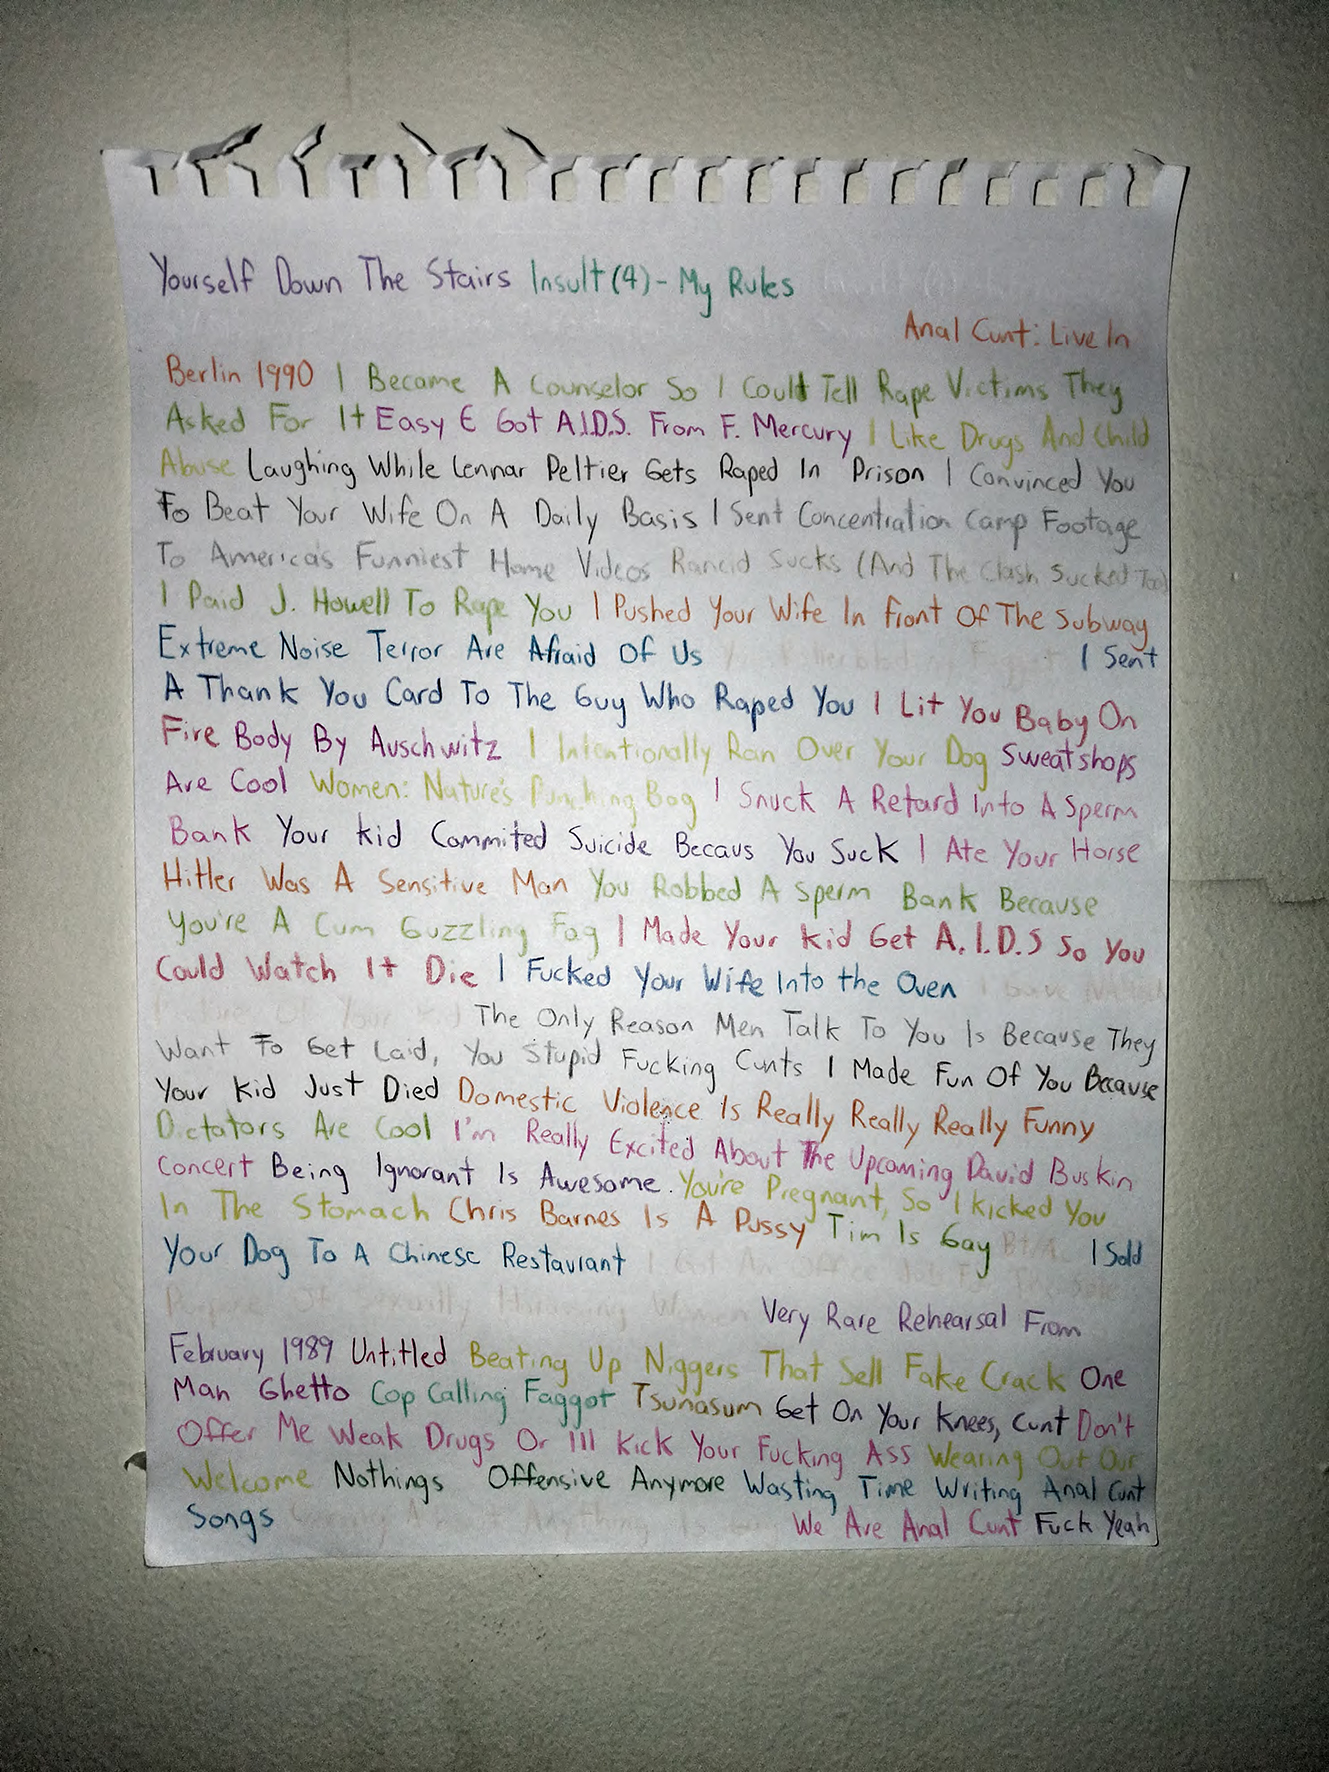 Yourself Down The Stairs Insult (4) - My Rules
Anal Cunt: Live In
Berlin 1990 I Became A Counselor So I Could Tell Rape Victims They
Asked For It Easy E Got A.I.D.S. From F. Mercury I Like Drugs And Child
Abuse Laughing While Lennar Peltier Gets Raped In Prison I Convinced You
To Beat Your Wife On A Daily Basis I Sent Concentration Camp Footage
To America's Funniest Home Videos Rancid Sucks (And The Clash Sucked Too)
I Paid J. Howell To Rape You I Pushed Your Wife In Front Of The Subway
Extreme Noise Terror Are Afraid Of Us I Sent
A Thank You Card To The Guy Who Raped You I Lit You Baby On
Fire Body By Auschwitz I Intentionally Ran Over Your Dog Sweatshops
Are Cool Women: Nature's Punching Bag I Snuck A Retard Into A Sperm
Bank Your Kid Commited Suicide Becaus You Suck I Ate Your Horse
Hitler Was A Sensitive Man You Robbed A Sperm Bank Because
You're A Cum Guzzling Fag I Made Your Kid Get A.I.D.S So You
Could Watch It Die I Fucked Your Wife Into the Oven I
Pictures Of Your Kid The Only Reason Men Talk To You Is Because They
Want To Get Laid, You Stupid Fucking Cunts I Made Fun Of You Because
Your Kid Just Died Domestic Violence Is Really Really Really Funny
Dictators Are Cool I'm Really Excited About The Upcoming David Buskin
Concert Being Ignorant Is Awesome. You're Pregnant, So I Kicked You
In The Stomach Chris Barnes Is A Pussy Tim Is Gay I Sold
Your Dog To A Chinese Restaurant I Got An Office Job For The Sole
Purpose Of Sexually Harassing Women Very Rare Rehearsal From
February 1989 Untitled Beating Up Niggers That Sell Fake Crack One
Man Ghetto Cop Calling Faggot Tsunasum Get On Your Knees, Cunt Don't
Offer Me Weak Drugs Or I'll Kick Your Fucking Ass Wearing Out Our
Welcome Nothings Offensive Anymore Wasting Time Writing Anal Cunt
Songs We Are Anal Cunt Fuck Yeah